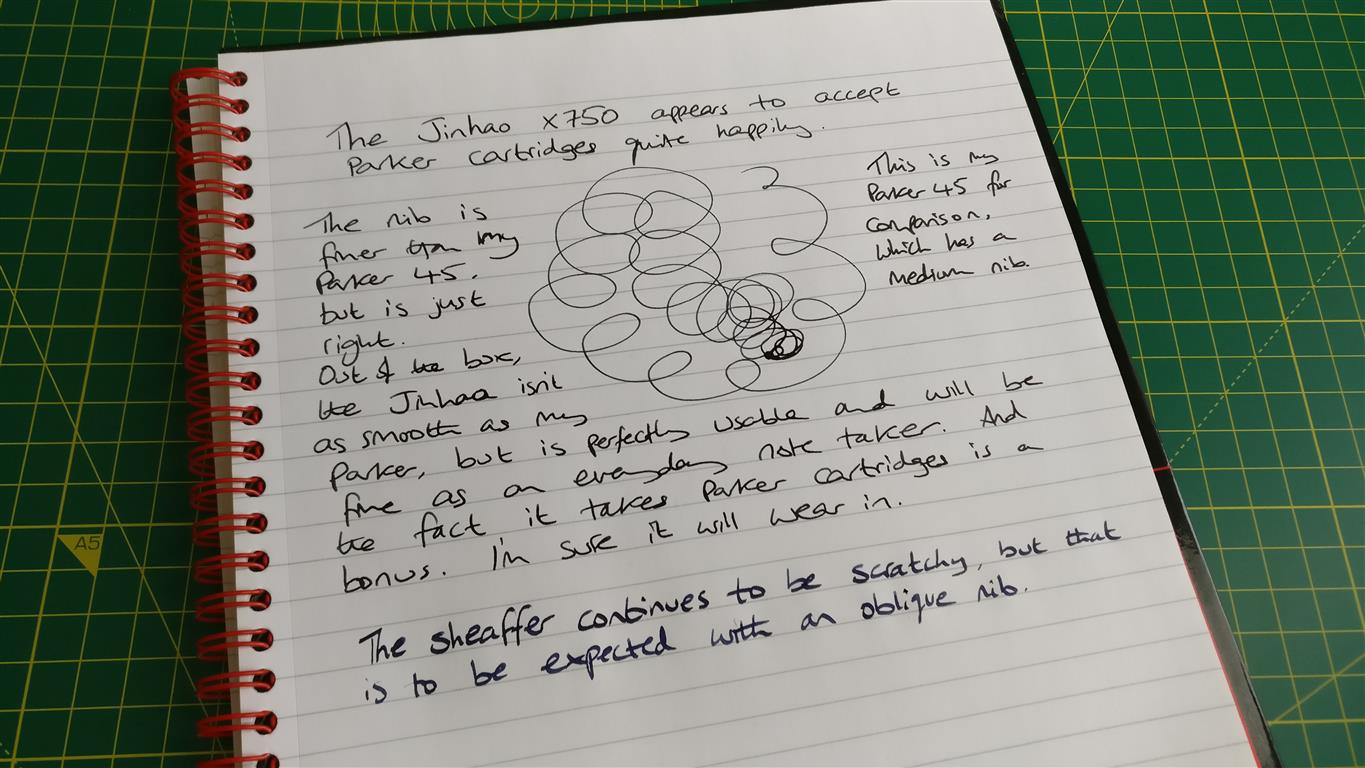 The Jinhao x750 appears to accept
Parker cartridges quite happily.
The nib is
finer than my
Parker 45.
but is just
right.
Out of the box,
the Jinhao isn't
as smooth as my
Parker, but is perfectly usable and will be
fine as an everyday note taker. And
the fact it takes Parker cartridges is a
bonus. I'm sure it will wear in.
This is my
Parker 45 for
comparison,
which has a
medium nib.
The sheaffer continues to be scratchy, but that
is to be expected with an oblique nib.
A5